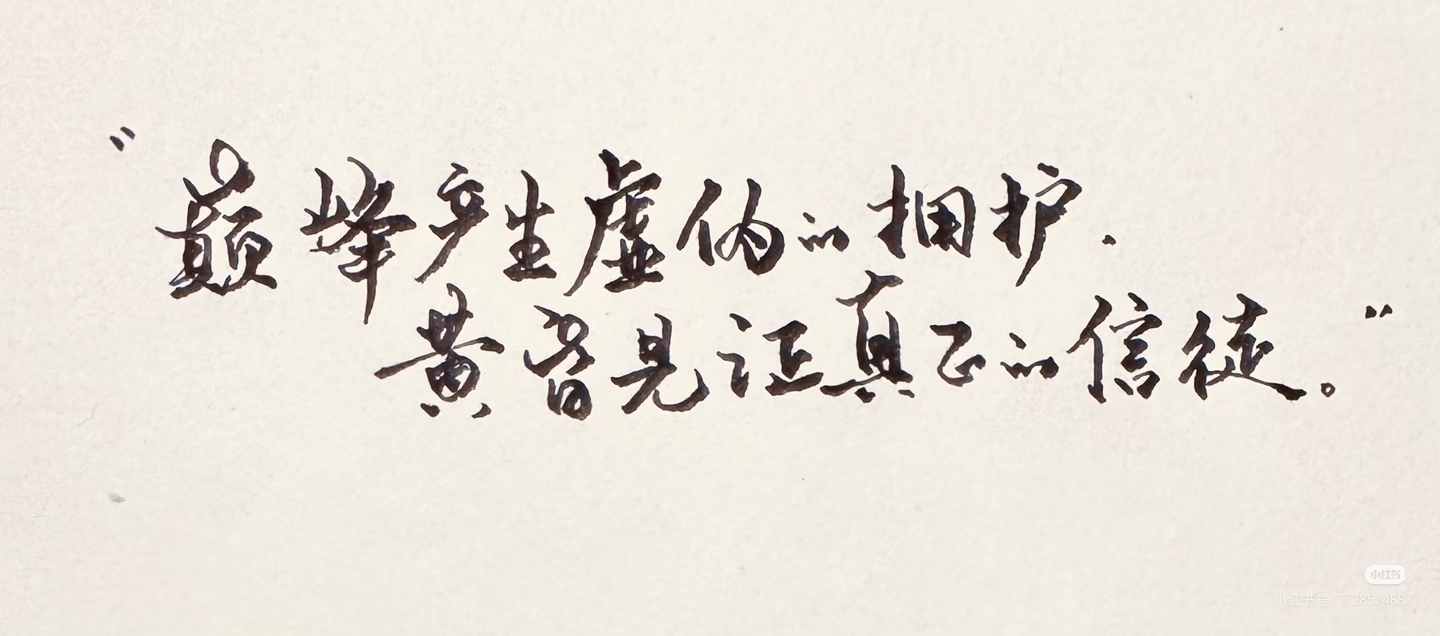 "巅峰产生虚伪的拥护.
黄昏见证真正的信徒。"
小红书
小红书号 772852488